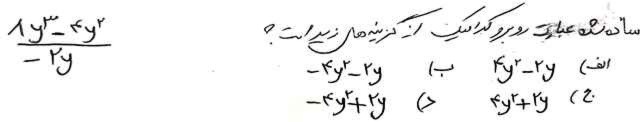 ساده شده عبارت روبرو کدامیک از گزینه های زیر است؟
۸y^۳ - ۴y^۲
-۲y
الف) ۴y^۲-۲y ب) -۴y^۲-۲y
ج) ۴y^۲+۲y د) -۴y^۲+۲y